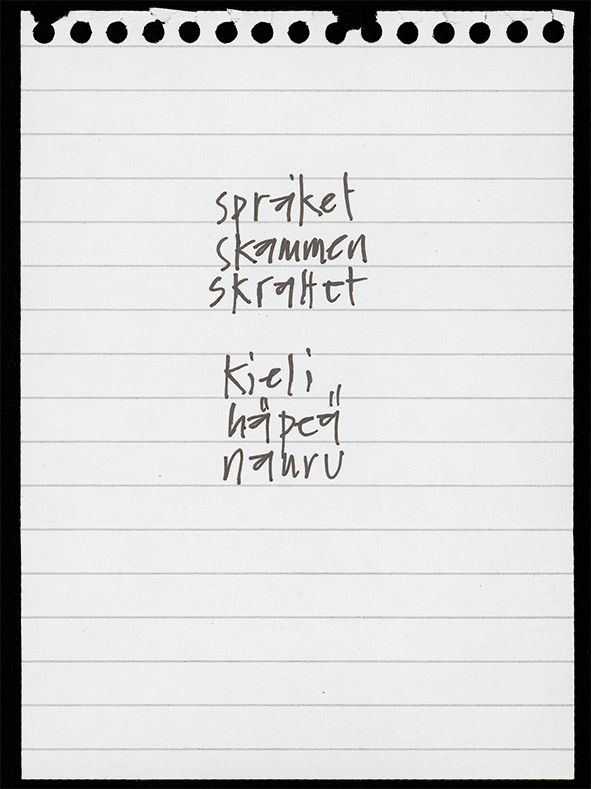 språket
skammen
skrattet

kieli
häpeä
nauru